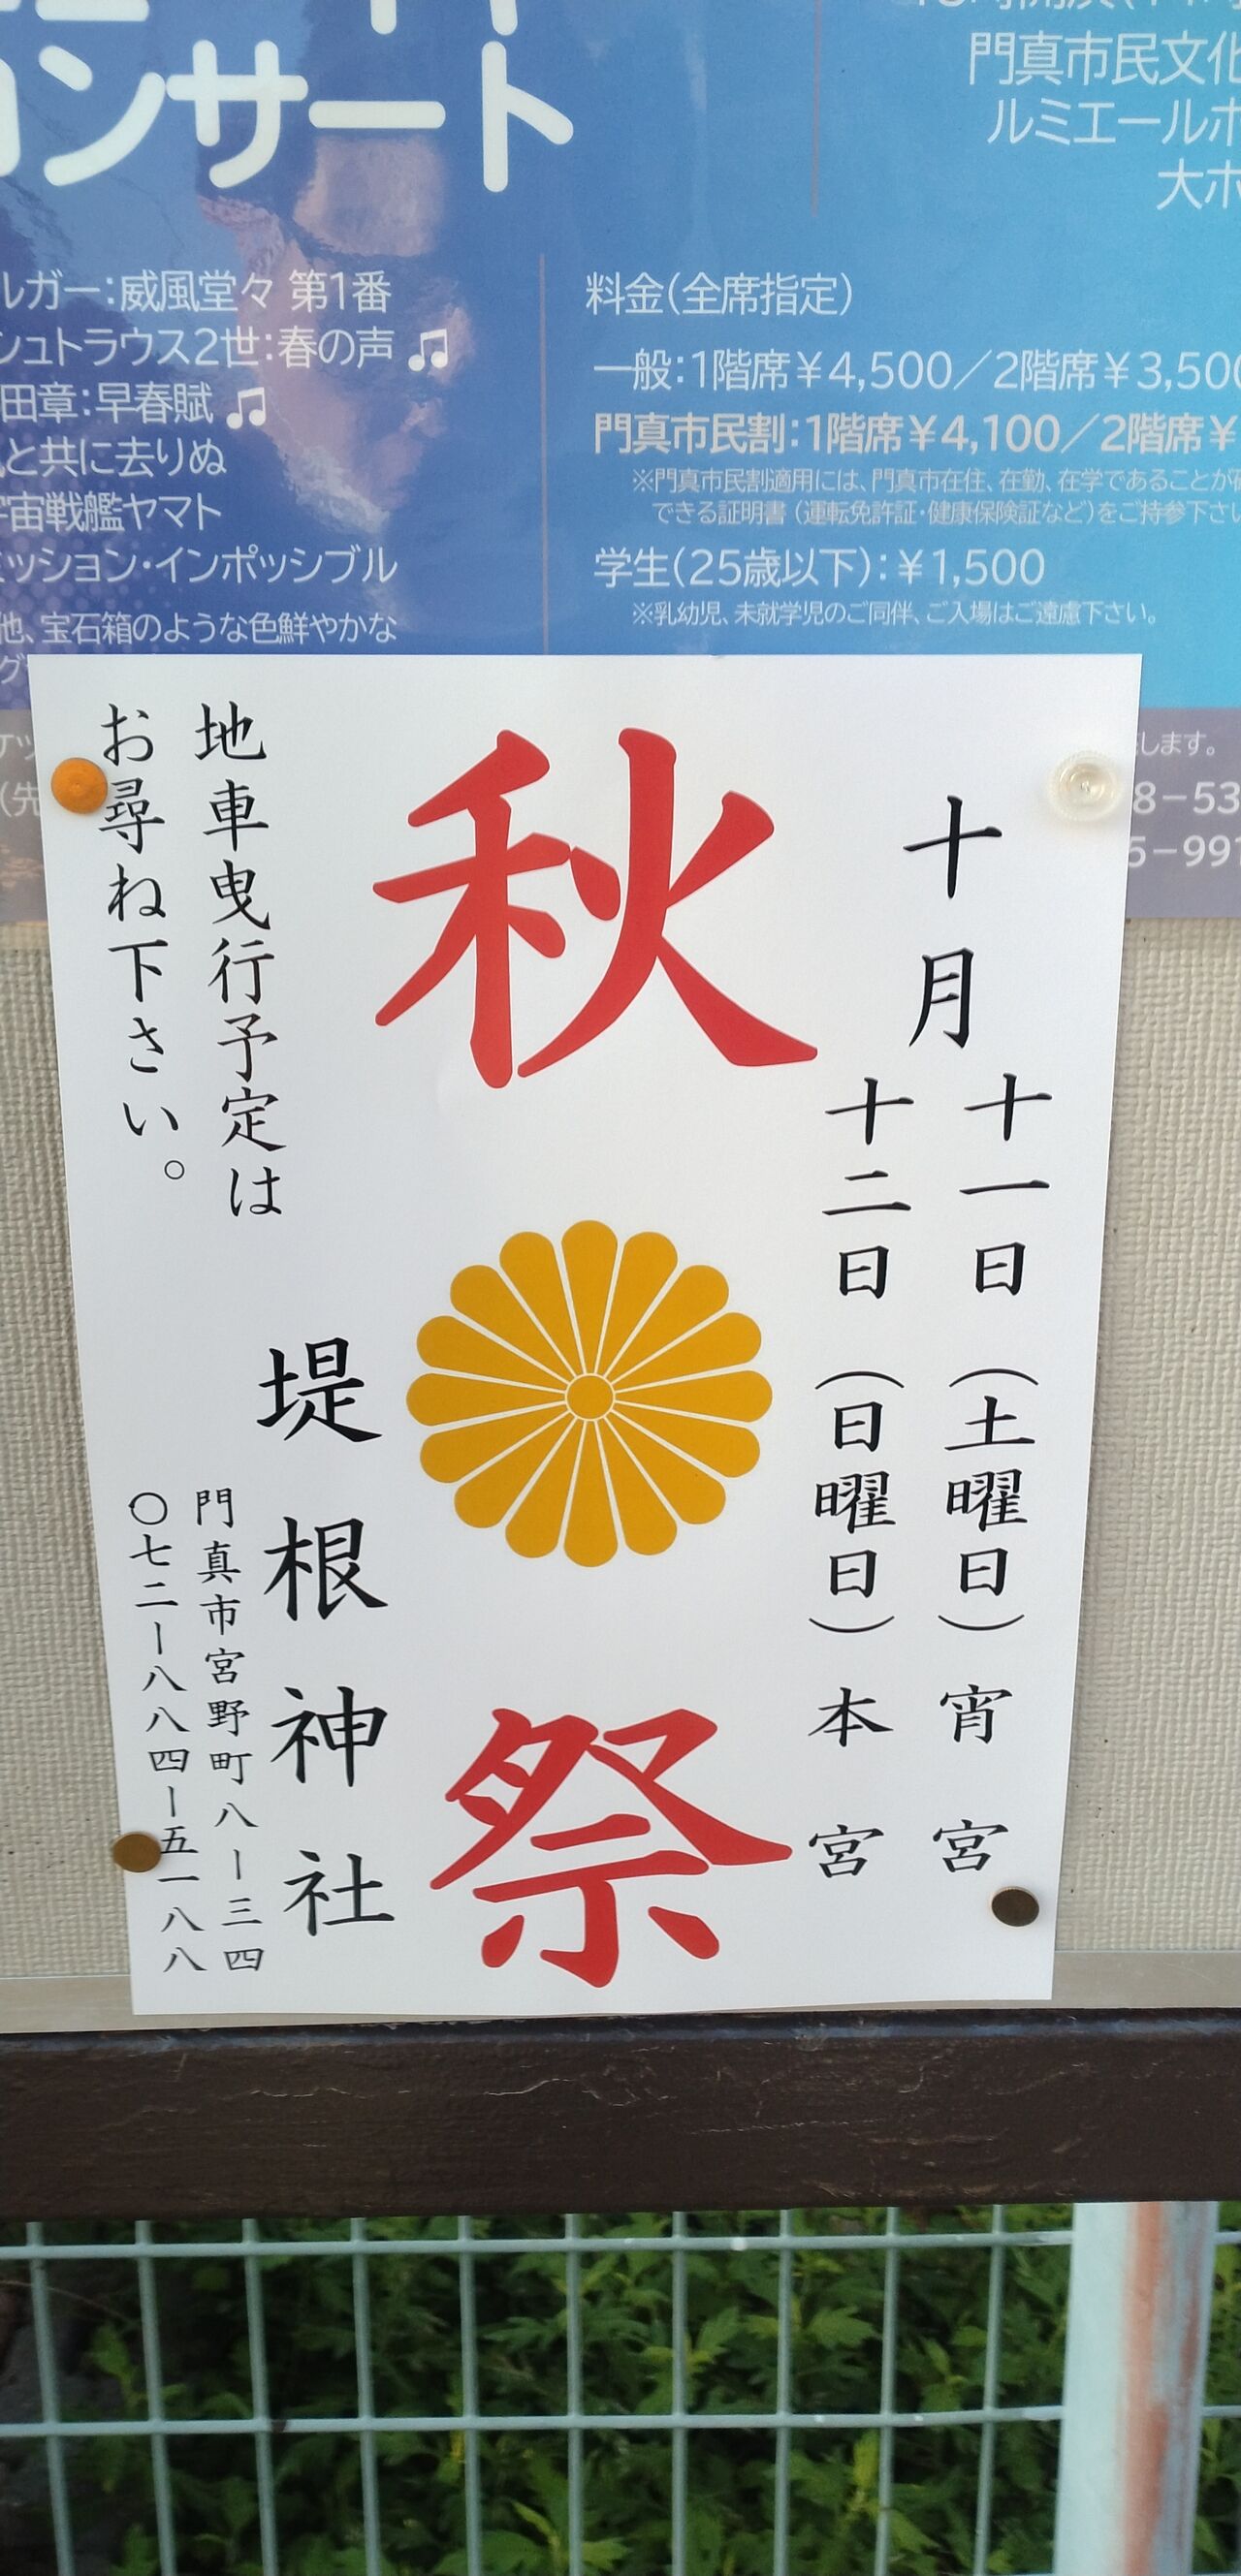 コンサート
門真市民文化
ルミエールホ
大ホ
ルガー：威風堂々 第1番
シュトラウス2世：春の声♫
田章：早春賦♫
と共に去りぬ
宇宙戦艦ヤマト
ミッション・インポッシブル
他、宝石箱のような色鮮やかな
料金（全席指定）
一般：1階席￥4,500／2階席￥3,500
門真市民割：1階席￥4,100／2階席￥
※門真市民割適用には、門真市在住、在勤、在学であることが確
できる証明書（運転免許証・健康保険証など）をご持参下さい
学生（25歳以下）：￥1,500
※乳幼児、未就学児のご同伴、ご入場はご遠慮下さい。
します。
8-53
5-991
十月
十一日（土曜日）宵宮
十二日（日曜日）本宮
秋祭
堤根神社
地車曳行予定は
お尋ね下さい。
門真市宮野町八ー三四
〇七二ー八八四ー五一八八